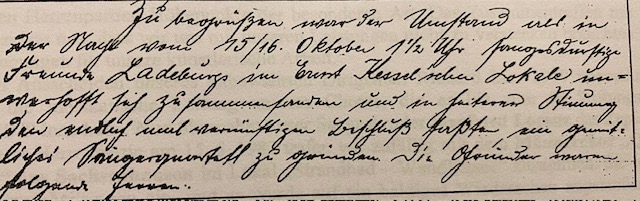 Zu begrüßen war der Umstand als in
der Nacht vom 15/16. Oktober 1½ Uhr sangesdurstige
Freunde Ladeburgs im Ernst Kessel'schen Lokale un-
verhofft sich zusammenfanden und in heiterer Stimmung
den endlich mal vernünftigen Beschluß faßten ein gemüt-
liches Sängerquartett zu gründen. Die Gründer waren
folgende Herren: